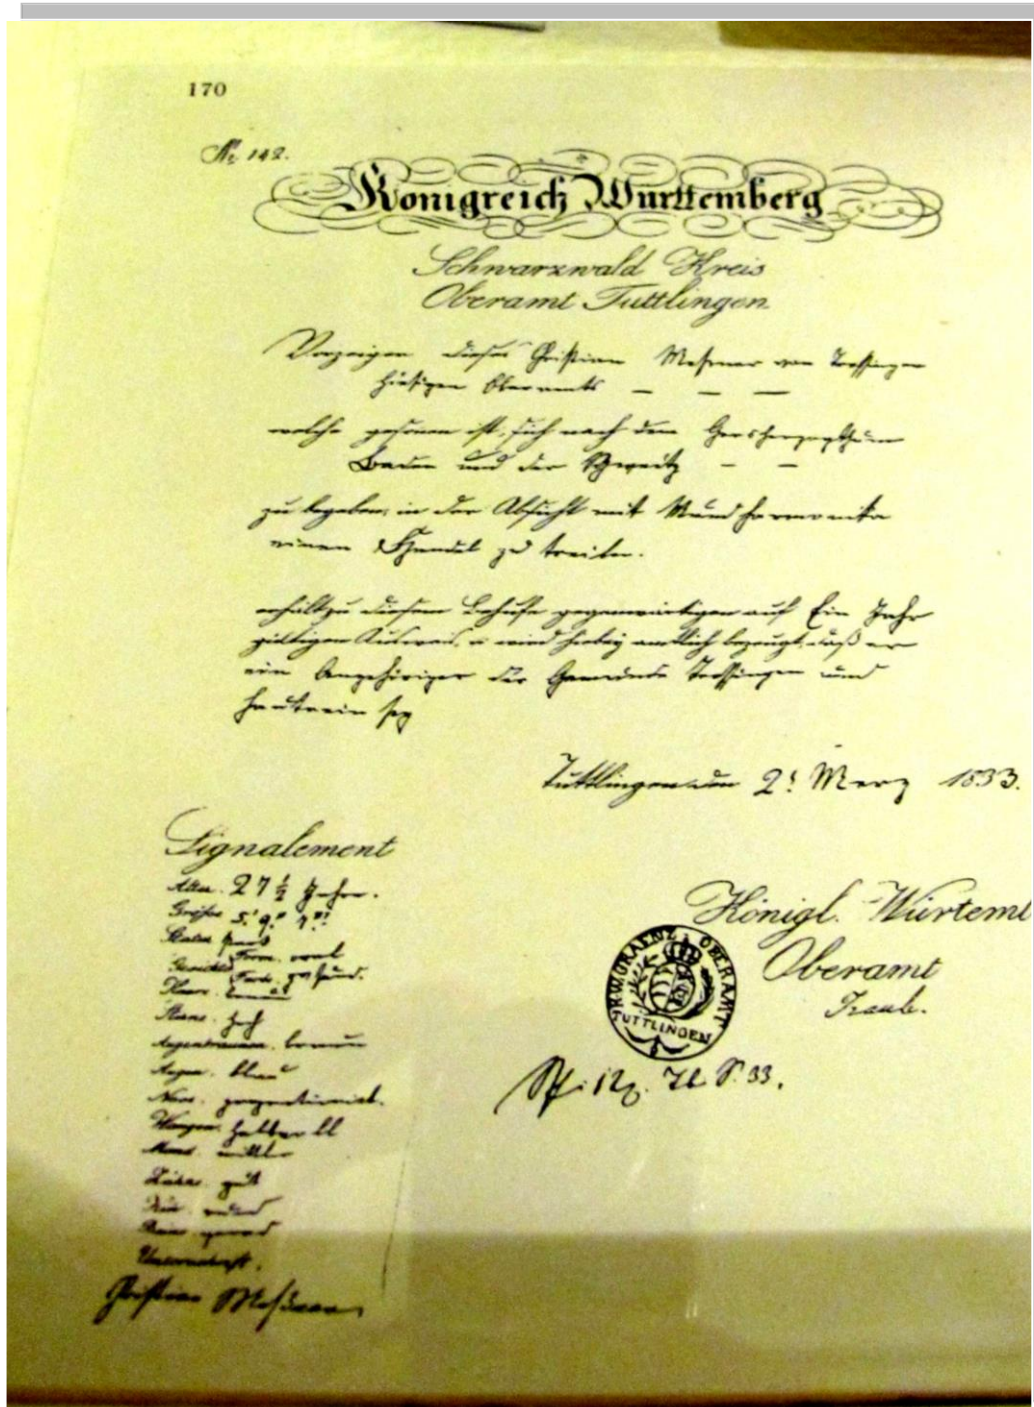 170
No 142.
Königreich Württemberg
Schwarzwald Kreis
Oberamt Tuttlingen
Vorzeigen dieses Christian Messner von Trossingen
hiesigen Oberamts — — —
welcher gesonnen ist, sich nach dem Grosherzogthum
Baden und der Schweitz — —
zu begeben, in der Absicht mit Mundharmonika
einen Handel zu treiben.
erhält zu diesem Behufe gegenwärtigen auf Ein Jahr
giltigen Ausweis, u. wird hiebey amtlich bezeugt, daß er
ein Angehöriger der Gemeinde Trossingen und
sey
Tuttlingen den 2t Merz 1833.
Signalement
Alter. 27 ½ Jahr.
Größe 5' 9"
Statur
Gesichts Form. oval
Farb. gesund.
Haare.
Stirne. hoch
Augenbraunen. braun
Augen. blau
Nase. proportionirt.
Wangen.
Mund. mittler
Zähne. gut
Kinn. rund
Beine gerad
Unterschrift.
Christian Messner
Königl. Würtemb
Oberamt
OBERAMT
TUTTLINGEN